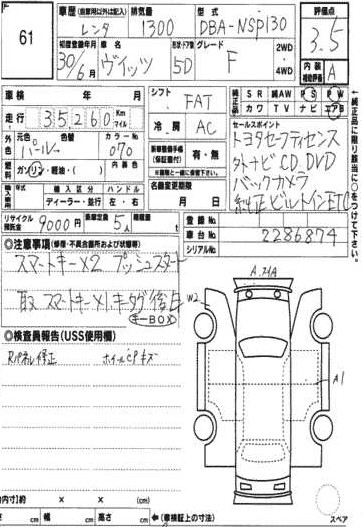 61
車歴 (自家用以外は記入) レンタ
排気量 1300
型式 DBA-NSP130
評価点 3.5
初度登録年月 30年6月
車名 ヴィッツ
形状・ドア数 5D
グレード F
2WD・4WD
内装 補助評価 A
車検 年 月
シフト FAT
純正品 SR 純AW PS PW
カワ TV ナビ エアB
走行 35260 Km マイル
冷房 AC
セールスポイント
トヨタセーフティセンス
外ナビ CD DVD
バックカメラ
純正ビルトインETC
外色 元色 パール 色替
カラーNo 070
内装色
燃料 ガソリン・軽油・( )
新車時保証書 有・無
輸入車 年式 輸入区分 ディーラー・並行 ハンドル 左・右
名義変更期限 月 日
リサイクル預託金 9000円
乗車定員 5人
積載量 t
登録No.
車台No. 2286874
シリアルNo.
←純正品に限り該当に○をつけて下さい。
◎注意事項 (修復・不具合箇所および状態等)
スマートキー×2 プッシュスタート
取 スマートキー×1 キータグ
キーBOX
◎検査員報告 (USS使用欄)
Rパネル修正 ホイールCPキズ
A, アハA
W2
A1
(内寸)約 × × (cm)
さ cm 幅 cm 高さ cm ←(車検証上の寸法)
スペア